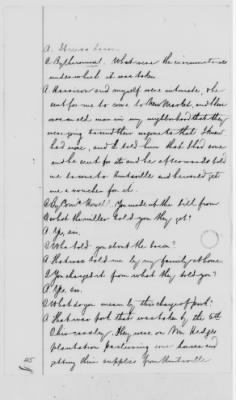 A. It was a barn.
Q. By the [counsel]. What were the circumstances
under which it was taken.
A. Harrison and myself were intimate, & he
sent for me to come to New Market, and there
was an old man in my neighborhood that they
were going to send their wagons to that
had more, and I told him that I had some
and he sent for it and he afterwards told
me to come to Huntsville and he would get
me a voucher for it.
Q. By Com'r. You made out the bill from
what the miller told you they got?
A. Yes, sir.
Q. Who told you about the bacon?
A. That was told me by my family at home
Q. You charged it from what they told you?
A. Yes, sir.
Q. What do you mean by this charge of pork?
A. That was pork that was taken by the 5th
Ohio cavalry. They were on Mr Hedges
plantation pasturing some horses and
getting their supplies from Huntsville